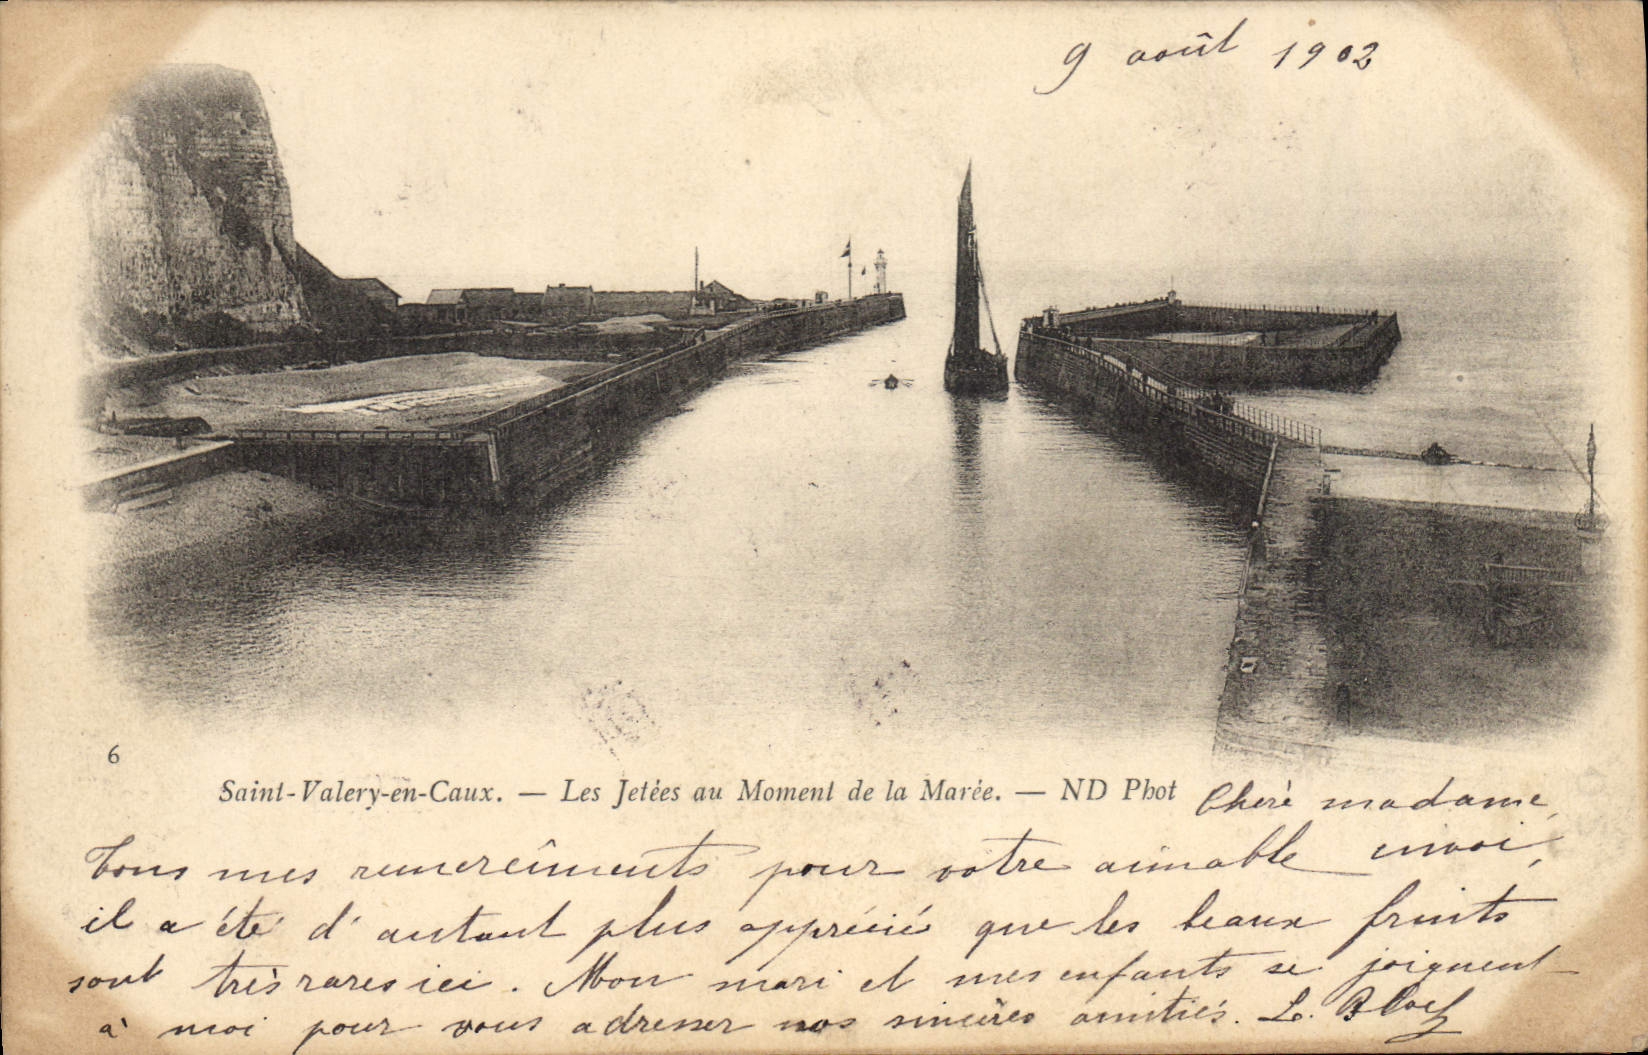 9 août 1902
6
Saint-Valery-en-Caux. — Les Jetées au Moment de la Marée. — ND Phot
Chère madame,
Tous mes remercîments pour votre aimable envoi,
il a été d'autant plus apprécié que les beaux fruits
sont très rares ici. Mon mari et mes enfants se joignent
à moi pour vous adresser nos sincères amitiés. L.